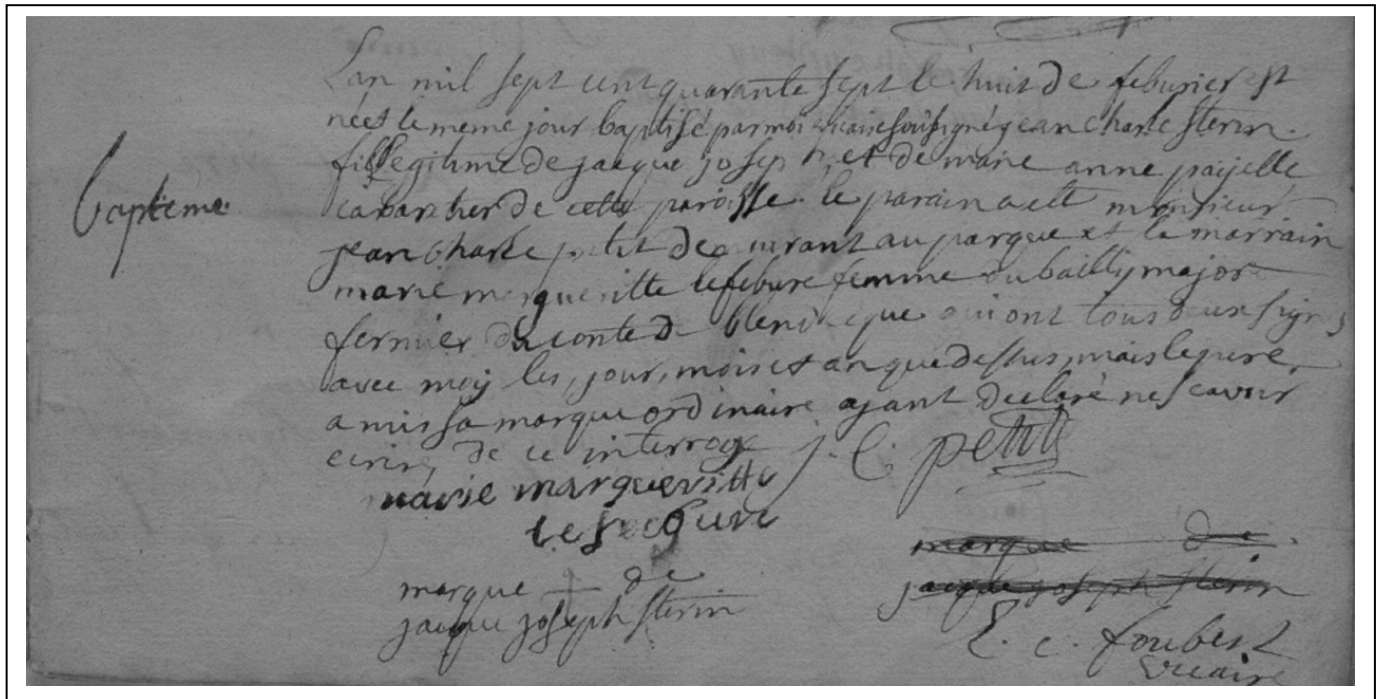 Baptême
L'an mil sept cent quarante sept le huit de feburier est
née et le meme jour baptisé par moi vicaire soussigné jean charle sterin
fils legitime de jacque joseph et de marie anne payelle
cabaretier de cette paroisse. le parain a est monsieur
jean charle petit demeurant au parque et la marrain
marie margueritte lefebure femme du bailly major
fermier du conte de blendecque qui ont tous deux signés
avec moy les, jour, mois et an que dessus, mais le pere
a mis sa marque ordinaire ajant declaré ne scavoir
ecrire, de ce interrogé
j. C. petit
marie margueritte
lefebure
marque de
jacque joseph sterin
marque de
jacque joseph sterin
L. c. foubert
vicaire